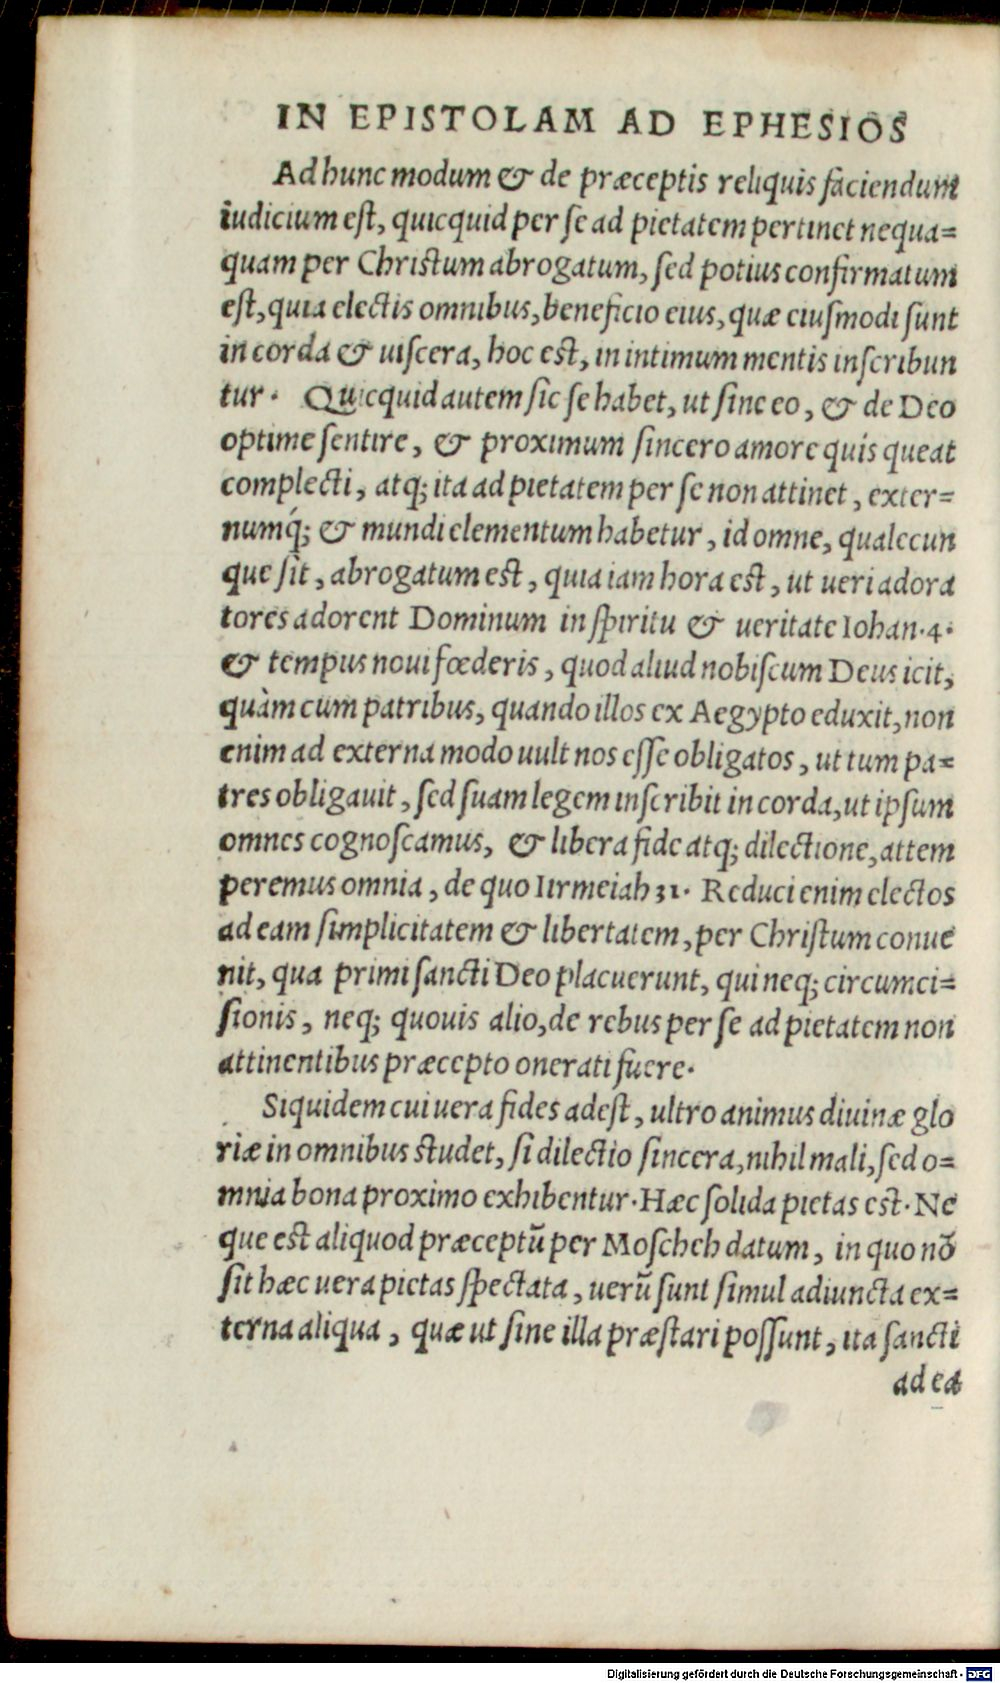 IN EPISTOLAM AD EPHESIOS
Ad hunc modum & de præceptis reliquis faciendum
iudicium est, quicquid per se ad pietatem pertinet nequa=
quam per Christum abrogatum, sed potius confirmatum
est, quia electis omnibus, beneficio eius, quæ eiusmodi sunt
in corda & uiscera, hoc est, in intimum mentis inscribun
tur. Quicquid autem sic se habet, ut sine eo, & de Deo
optime sentire, & proximum sincero amore quis queat
complecti, atq; ita ad pietatem per se non attinet, exter=
numq́; & mundi elementum habetur, id omne, qualecun
que sit, abrogatum est, quia iam hora est, ut ueri adora
tores adorent Dominum in spiritu & ueritate Iohan.4.
& tempus noui fœderis, quod aliud nobiscum Deus icit,
quàm cum patribus, quando illos ex Aegypto eduxit, non
enim ad externa modo uult nos esse obligatos, ut tum pa=
tres obligauit, sed suam legem inscribit in corda, ut ipsum
omnes cognoscamus, & libera fide atq; dilectione, attem
peremus omnia, de quo Iirmeiah 31. Reduci enim electos
ad eam simplicitatem & libertatem, per Christum conue
nit, qua primi sancti Deo placuerunt, qui neq; circumci=
sionis, neq; quouis alio, de rebus per se ad pietatem non
attinentibus præcepto onerati fuere.
Siquidem cui uera fides adest, ultro animus diuinæ glo
riæ in omnibus studet, si dilectio sincera, nihil mali, sed o=
mnia bona proximo exhibentur. Hæc solida pietas est. Ne
que est aliquod præceptũ per Moscheh datum, in quo nõ
sit hæc uera pietas spectata, uerũ sunt simul adiuncta ex=
terna aliqua, quæ ut sine illa præstari possunt, ita sancti
ad ea
Digitalisierung gefördert durch die Deutsche Forschungsgemeinschaft - DFG